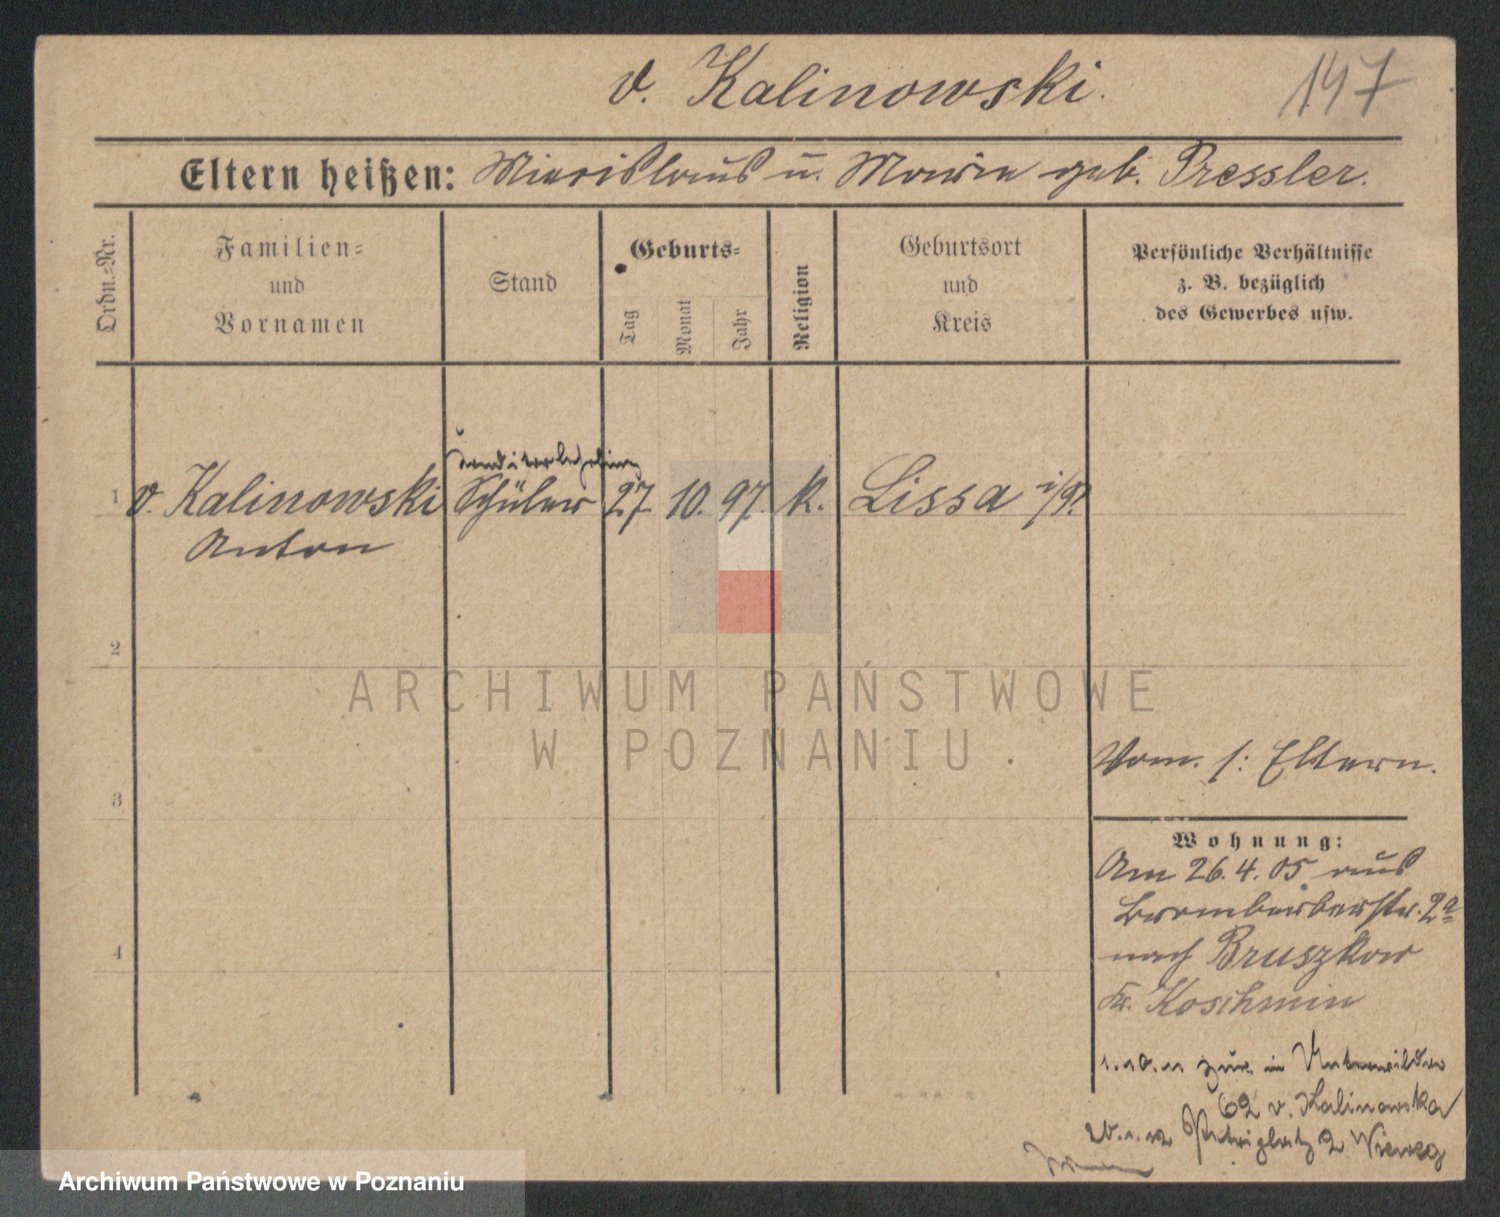 v. Kalinowski. 197
Eltern heißen: Miecislaus u. Maria geb. Pressler.
Ordn.-Nr.
Familien-
und
Vornamen
Stand
Geburts-
Tag
Monat
Jahr
Religion
Geburtsort
und
Kreis
Persönliche Verhältnisse
z. B. bezüglich
des Gewerbes usw.
1 v. Kalinowski Schüler 27. 10. 97. k. Lissa i/P.
Anton
2
3
4
Vom. s: Eltern.
Wohnung:
Am 26.4.05 aus
2a
nach Bruszkow
Kr. Koschmin
1.10.11 zur. in Unterwilda
62 v. Kalinowska
2
ARCHIWUM PAŃSTWOWE
W POZNANIU
Archiwum Państwowe w Poznaniu